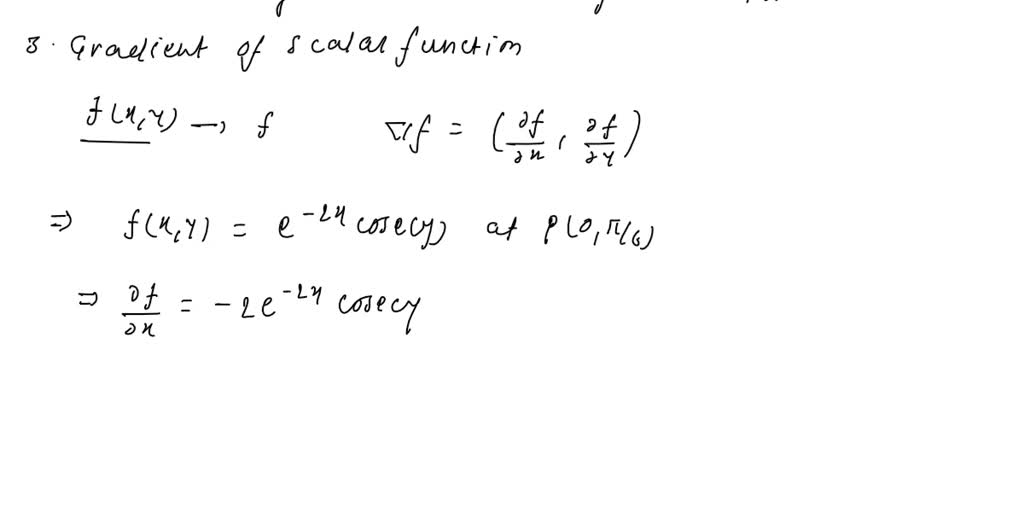 3. Gradient of scalar function
f(x,y) → f ∇f = (∂f/∂x, ∂f/∂y)
⇒ f(x,y) = e^{-2x} cosec(y) at P(0, π/6)
⇒ ∂f/∂x = -2e^{-2x} cosecy